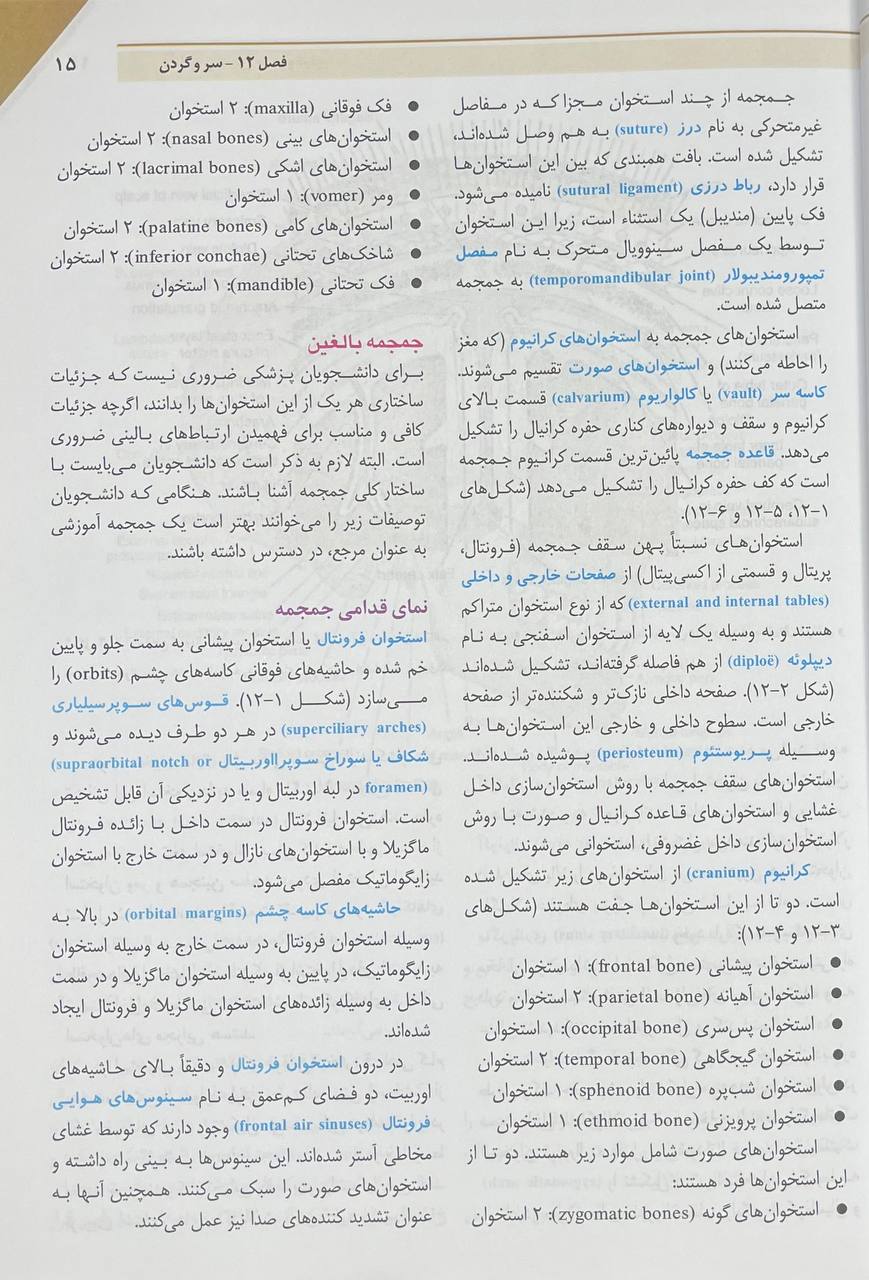 فصل ۱۲ – سر و گردن
۱۵
جمجمه از چند استخوان مجزا که در مفاصل
غیرمتحرکی به نام درز (suture) به هم وصل شده‌اند،
تشکیل شده است. بافت همبندی که بین این استخوان‌ها
قرار دارد، رباط درزی (sutural ligament) نامیده می‌شود.
فک پایین (مندیبل) یک استثناء است، زیرا این استخوان
توسط یک مفصل سینوویال متحرک به نام مفصل
تمپورومندیبولار (temporomandibular joint) به جمجمه
متصل شده است.
استخوان‌های جمجمه به استخوان‌های کرانیوم (که مغز
را احاطه می‌کنند) و استخوان‌های صورت تقسیم می‌شوند.
کاسه سر (vault) یا کالواریوم (calvarium) قسمت بالای
کرانیوم و سقف و دیواره‌های کناری حفره کرانیال را تشکیل
می‌دهد. قاعده جمجمه پائین‌ترین قسمت کرانیوم جمجمه
است که کف حفره کرانیال را تشکیل می‌دهد (شکل‌های
۱-۱۲، ۵-۱۲ و ۶-۱۲).
استخوان‌های نسبتاً پهن سقف جمجمه (فرونتال،
پریتال و قسمتی از اکسی‌پیتال) از صفحات خارجی و داخلی
(external and internal tables) که از نوع استخوان متراکم
هستند و به وسیله یک لایه از استخوان اسفنجی به نام
دیپلوئه (diploë) از هم فاصله گرفته‌اند، تشکیل شده‌اند
(شکل ۲-۱۲). صفحه داخلی نازک‌تر و شکننده‌تر از صفحه
خارجی است. سطوح داخلی و خارجی این استخوان‌ها به
وسیله پریوستئوم (periosteum) پوشیده شده‌اند.
استخوان‌های سقف جمجمه با روش استخوان‌سازی داخل
غشایی و استخوان‌های قاعده کرانیال و صورت با روش
استخوان‌سازی داخل غضروفی، استخوانی می‌شوند.
کرانیوم (cranium) از استخوان‌های زیر تشکیل شده
است. دو تا از این استخوان‌ها جفت هستند (شکل‌های
۳-۱۲ و ۴-۱۲):
● استخوان پیشانی (frontal bone): ۱ استخوان
● استخوان آهیانه (parietal bone): ۲ استخوان
● استخوان پس‌سری (occipital bone): ۱ استخوان
● استخوان گیجگاهی (temporal bone): ۲ استخوان
● استخوان شب‌پره (sphenoid bone): ۱ استخوان
● استخوان پرویزنی (ethmoid bone): ۱ استخوان
استخوان‌های صورت شامل موارد زیر هستند. دو تا از
این استخوان‌ها فرد هستند:
● استخوان‌های گونه (zygomatic bones): ۲ استخوان
● فک فوقانی (maxilla): ۲ استخوان
● استخوان‌های بینی (nasal bones): ۲ استخوان
● استخوان‌های اشکی (lacrimal bones): ۲ استخوان
● ومر (vomer): ۱ استخوان
● استخوان‌های کامی (palatine bones): ۲ استخوان
● شاخک‌های تحتانی (inferior conchae): ۲ استخوان
● فک تحتانی (mandible): ۱ استخوان
جمجمه بالغین
برای دانشجویان پزشکی ضروری نیست که جزئیات
ساختاری هر یک از این استخوان‌ها را بدانند، اگرچه جزئیات
کافی و مناسب برای فهمیدن ارتباط‌های بالینی ضروری
است. البته لازم به ذکر است که دانشجویان می‌بایست با
ساختار کلی جمجمه آشنا باشند. هنگامی که دانشجویان
توصیفات زیر را می‌خوانند بهتر است یک جمجمه آموزشی
به عنوان مرجع، در دسترس داشته باشند.
نمای قدامی جمجمه
استخوان فرونتال یا استخوان پیشانی به سمت جلو و پایین
خم شده و حاشیه‌های فوقانی کاسه‌های چشم (orbits) را
می‌سازد (شکل ۱-۱۲). قوس‌های سوپرسیلیاری
(superciliary arches) در هر دو طرف دیده می‌شوند و
شکاف یا سوراخ سوپرااوربیتال (supraorbital notch or
foramen) در لبه اوربیتال و یا در نزدیکی آن قابل تشخیص
است. استخوان فرونتال در سمت داخل با زائده فرونتال
ماگزیلا و با استخوان‌های نازال و در سمت خارج با استخوان
زایگوماتیک مفصل می‌شود.
حاشیه‌های کاسه چشم (orbital margins) در بالا به
وسیله استخوان فرونتال، در سمت خارج به وسیله استخوان
زایگوماتیک، در پایین به وسیله استخوان ماگزیلا و در سمت
داخل به وسیله زائده‌های استخوان ماگزیلا و فرونتال ایجاد
شده‌اند.
در درون استخوان فرونتال و دقیقاً بالای حاشیه‌های
اوربیت، دو فضای کم‌عمق به نام سینوس‌های هوایی
فرونتال (frontal air sinuses) وجود دارند که توسط غشای
مخاطی آستر شده‌اند. این سینوس‌ها به بینی راه داشته و
استخوان‌های صورت را سبک می‌کنند. همچنین آنها به
عنوان تشدید کننده‌های صدا نیز عمل می‌کنند.